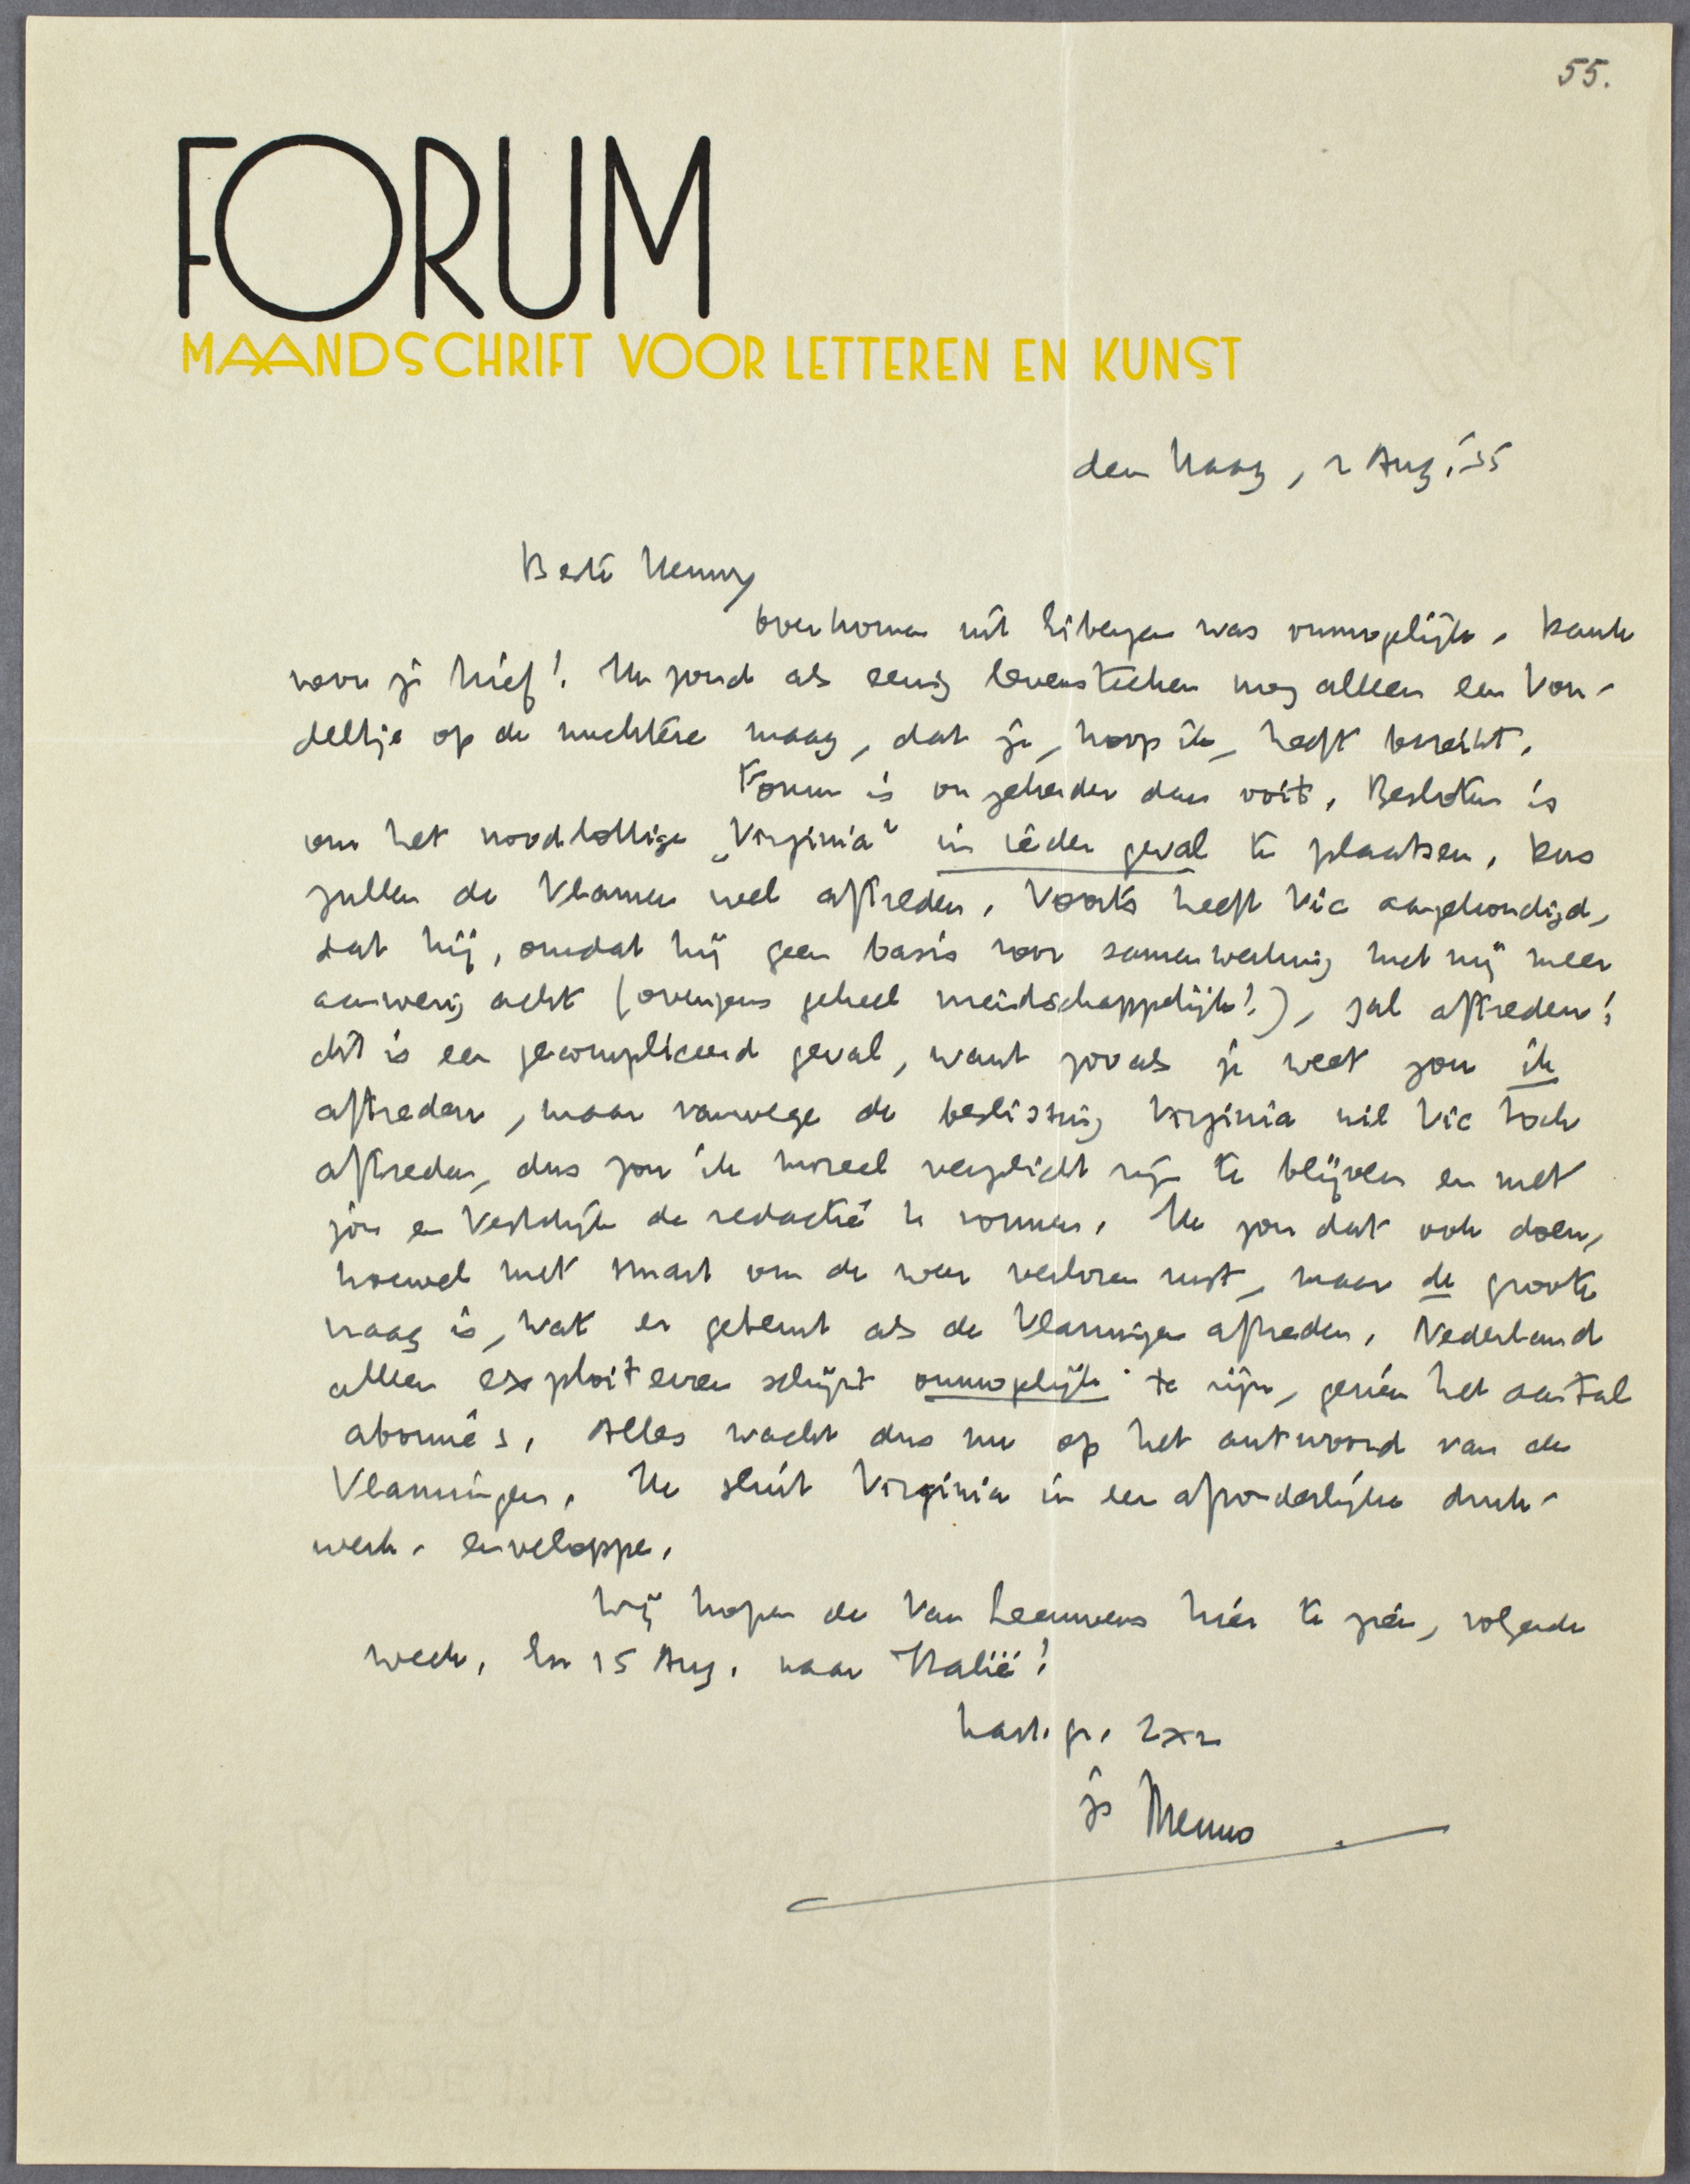 55.
FORUM
MAANDSCHRIFT VOOR LETTEREN EN KUNST
den Haag, 2 Aug. '35
Beste Henny
Overkomen uit Eibergen was onmogelijk. Dank
voor je brief! Ik zond als eenig levensteeken nog alleen een Von-
deltje op de nuchtere maag, dat je, hoop ik, heeft bereikt.
Forum is onzekerder dan ooit. Besloten is
om het noodlottige „Virginia" in ieder geval te plaatsen. Dus
zullen de Vlamen wel aftreden. Voorts heeft Vic aangekondigd,
dat hij, omdat hij geen basis voor samenwerking met mij meer
aanwezig acht (overigens geheel vriendschappelijk!), zal aftreden;
dit is een gecompliceerd geval, want zooals je weet zou ik
aftreden, maar vanwege de beslissing Virginia wil Vic toch
aftreden, dus zou ik moreel verplicht zijn te blijven en met
jou en Vestdijk de redactie te vormen. Ik zou dat ook doen,
hoewel met smart om de weer verloren rust, maar de groote
vraag is, wat er gebeurt als de Vlamingen aftreden. Nederland
alleen exploiteeren schijnt onmogelijk te zijn, gezien het aantal
abonné's. Alles wacht dus nu op het antwoord van de
Vlamingen. Ik sluit Virginia in een afzonderlijke druk-
werk-enveloppe.
Wij hopen de Van Leeuwens hier te zien, volgende
week. En 15 Aug. naar Italië!
hart. gr. 2x2
je Menno